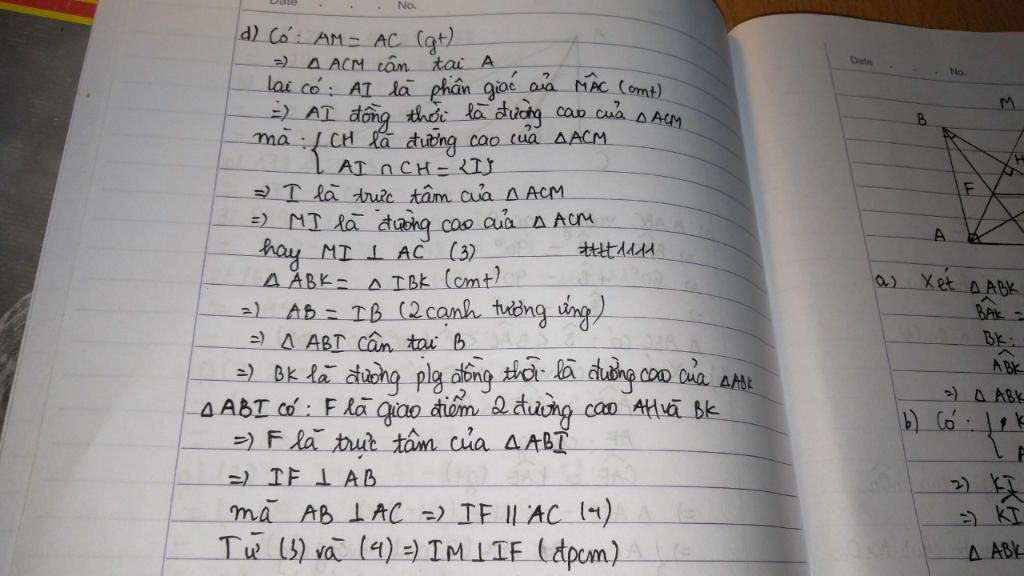 Date . . . No.
d) Có: AM = AC (gt)
⇒ Δ ACM cân tại A
lại có: AI là phân giác của MÂC (cmt)
⇒ AI đồng thời là đường cao của Δ ACM
mà: { CH là đường cao của Δ ACM
AI ∩ CH = {I}
⇒ I là trực tâm của Δ ACM
⇒ MI là đường cao của Δ ACM
hay MI ⊥ AC (3)
Δ ABK = Δ IBK (cmt)
⇒ AB = IB (2 cạnh tương ứng)
⇒ Δ ABI cân tại B
⇒ BK là đường plg đồng thời là đường cao của Δ ABK
Δ ABI có: F là giao điểm 2 đường cao AH và BK
⇒ F là trực tâm của Δ ABI
⇒ IF ⊥ AB
mà AB ⊥ AC ⇒ IF // AC (4)
Từ (3) và (4) ⇒ IM ⊥ IF (đpcm)
Date . . . No.
M
B
H
F
A
a) Xét Δ ABK
BÂK =
BK:
ABK
⇒ Δ ABK
b) Có: {
⇒ KI
⇒ KI
Δ ABK